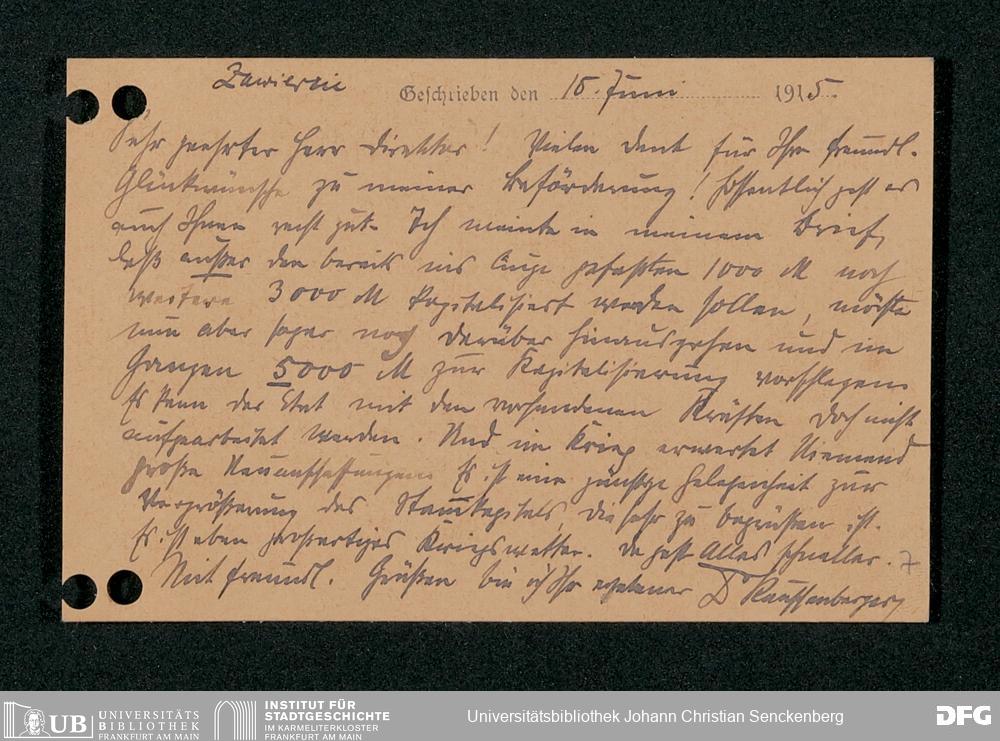 Zawiercie Geschrieben den 15. Juni 1915.
Sehr geehrter Herr Direktor! Vielen Dank für Ihre freundl.
Glückwünsche zu meiner Beförderung! Hoffentlich geht es
auch Ihnen recht gut. Ich meinte in meinem Brief,
daß außer den bereits ins Auge gefaßten 1000 M noch
weitere 3000 M kapitalisiert werden sollen, möchte
nun aber sogar noch darüber hinausgehen und im
Ganzen 5000 M zur Kapitalisierung vorschlagen.
Es kann der Etat mit den vorhandenen Kräften doch nicht
aufgearbeitet werden. Und im Krieg erwartet Niemand
große Neuanschaffungen. Es ist eine günstige Gelegenheit zur
Vergrößerung des Stammkapitals, die sehr zu begrüßen ist.
Es ist eben großartiges Kriegswetter. Da geht Alles schneller.
Mit freundl. Grüßen bin ich Ihr ergebener Dr Rauschenberger
UB UNIVERSITÄTS
BIBLIOTHEK
FRANKFURT AM MAIN
INSTITUT FÜR
STADTGESCHICHTE
IM KARMELITERKLOSTER
FRANKFURT AM MAIN
Universitätsbibliothek Johann Christian Senckenberg
DFG